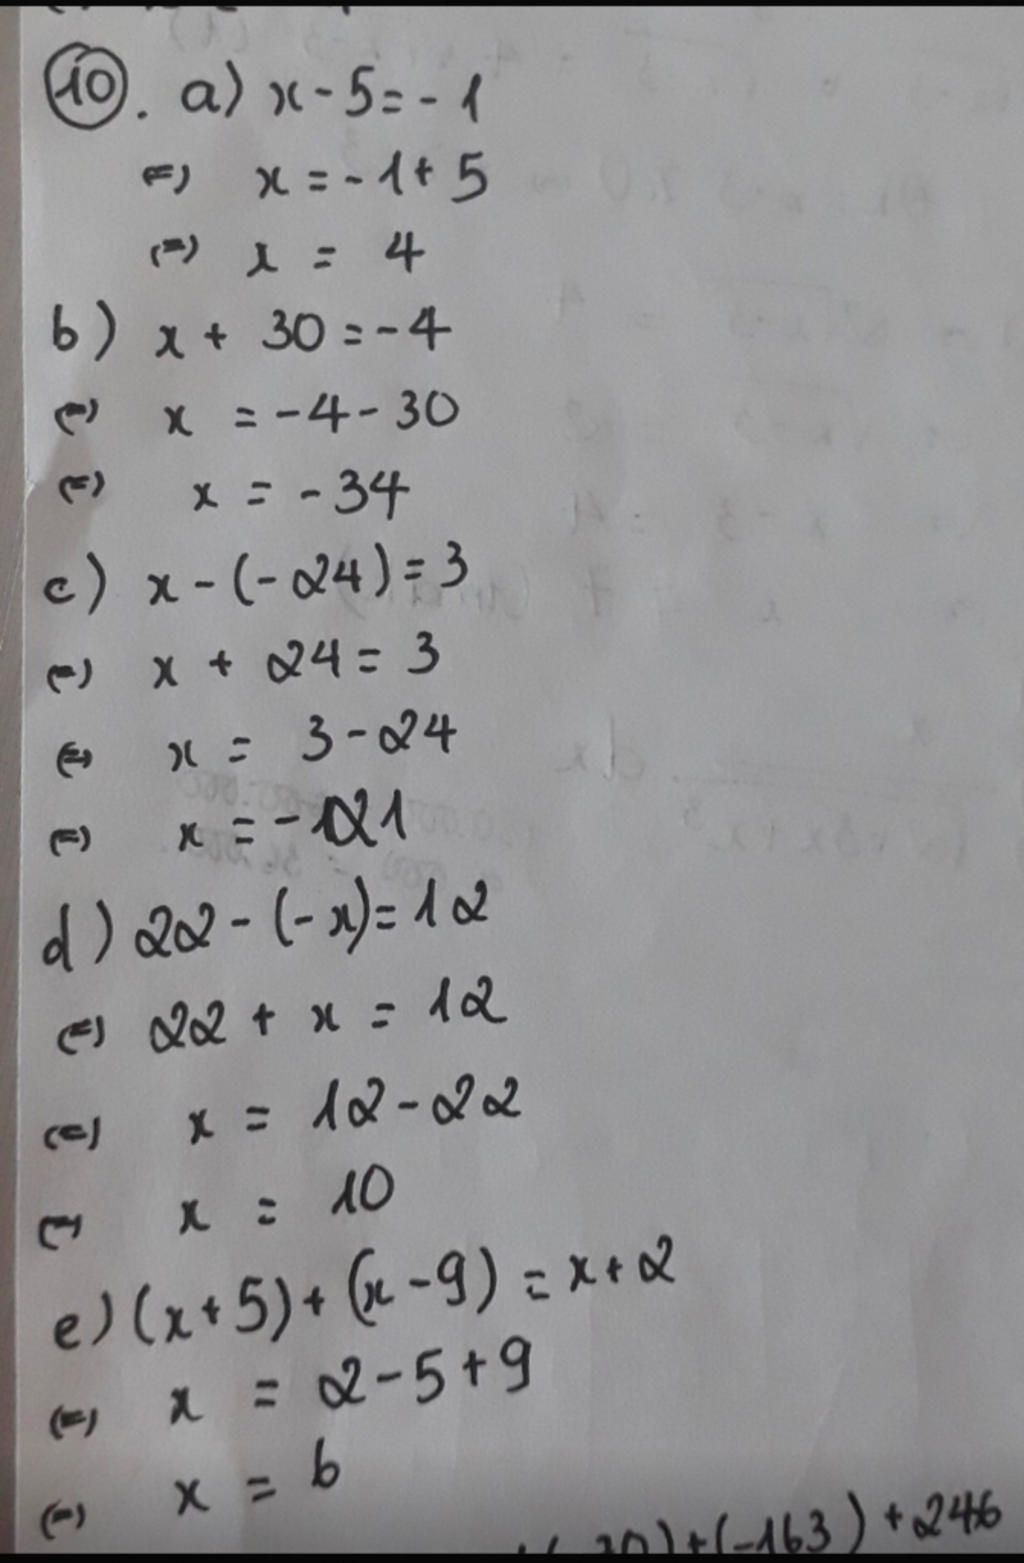 10. a) x - 5 = - 1
(=) x = - 1 + 5
(=) x = 4
b) x + 30 = - 4
(=) x = - 4 - 30
(=) x = - 34
c) x - (- 24) = 3
(=) x + 24 = 3
(=) x = 3 - 24
(=) x = - 21
d) 22 - (- x) = 12
(=) 22 + x = 12
(=) x = 12 - 22
(=) x = 10
e) (x + 5) + (x - 9) = x + 2
(=) x = 2 - 5 + 9
(=) x = 6
+ (-163) + 246